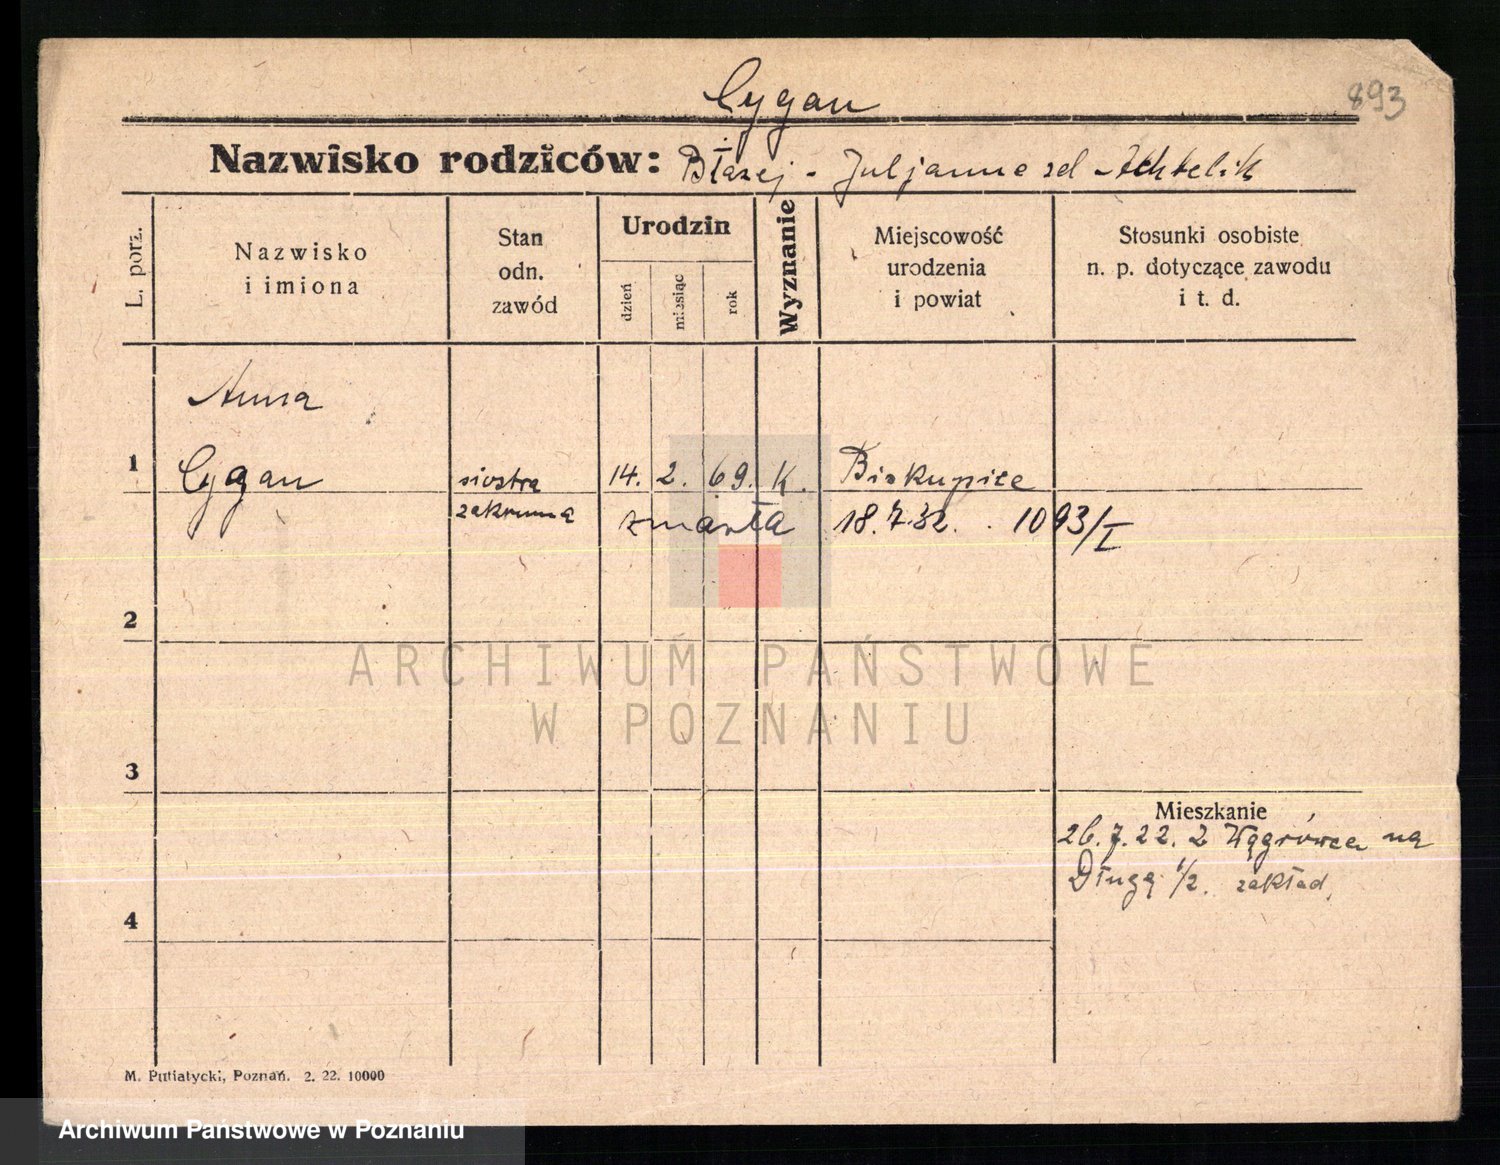 Cygan
893
Nazwisko rodziców: Błażej - Juljanne zd Achtelik
L. porz.
Nazwisko
i imiona
Stan
odn.
zawód
Urodzin
dzień
miesiąc
rok
Wyznanie
Miejscowość
urodzenia
i powiat
Stosunki osobiste
n. p. dotyczące zawodu
i t. d.
Anna
1 Cygan siostra 14. 2. 69. K. Biskupice
zakonna zmarła 18.7.32. 1093/I
2
ARCHIWUM PAŃSTWOWE
W POZNANIU
3
Mieszkanie
26.7.22. z Wągrówca na
Długą 1/2. zakład.
4
M. Putiatycki, Poznań. 2. 22. 10000
Archiwum Państwowe w Poznaniu